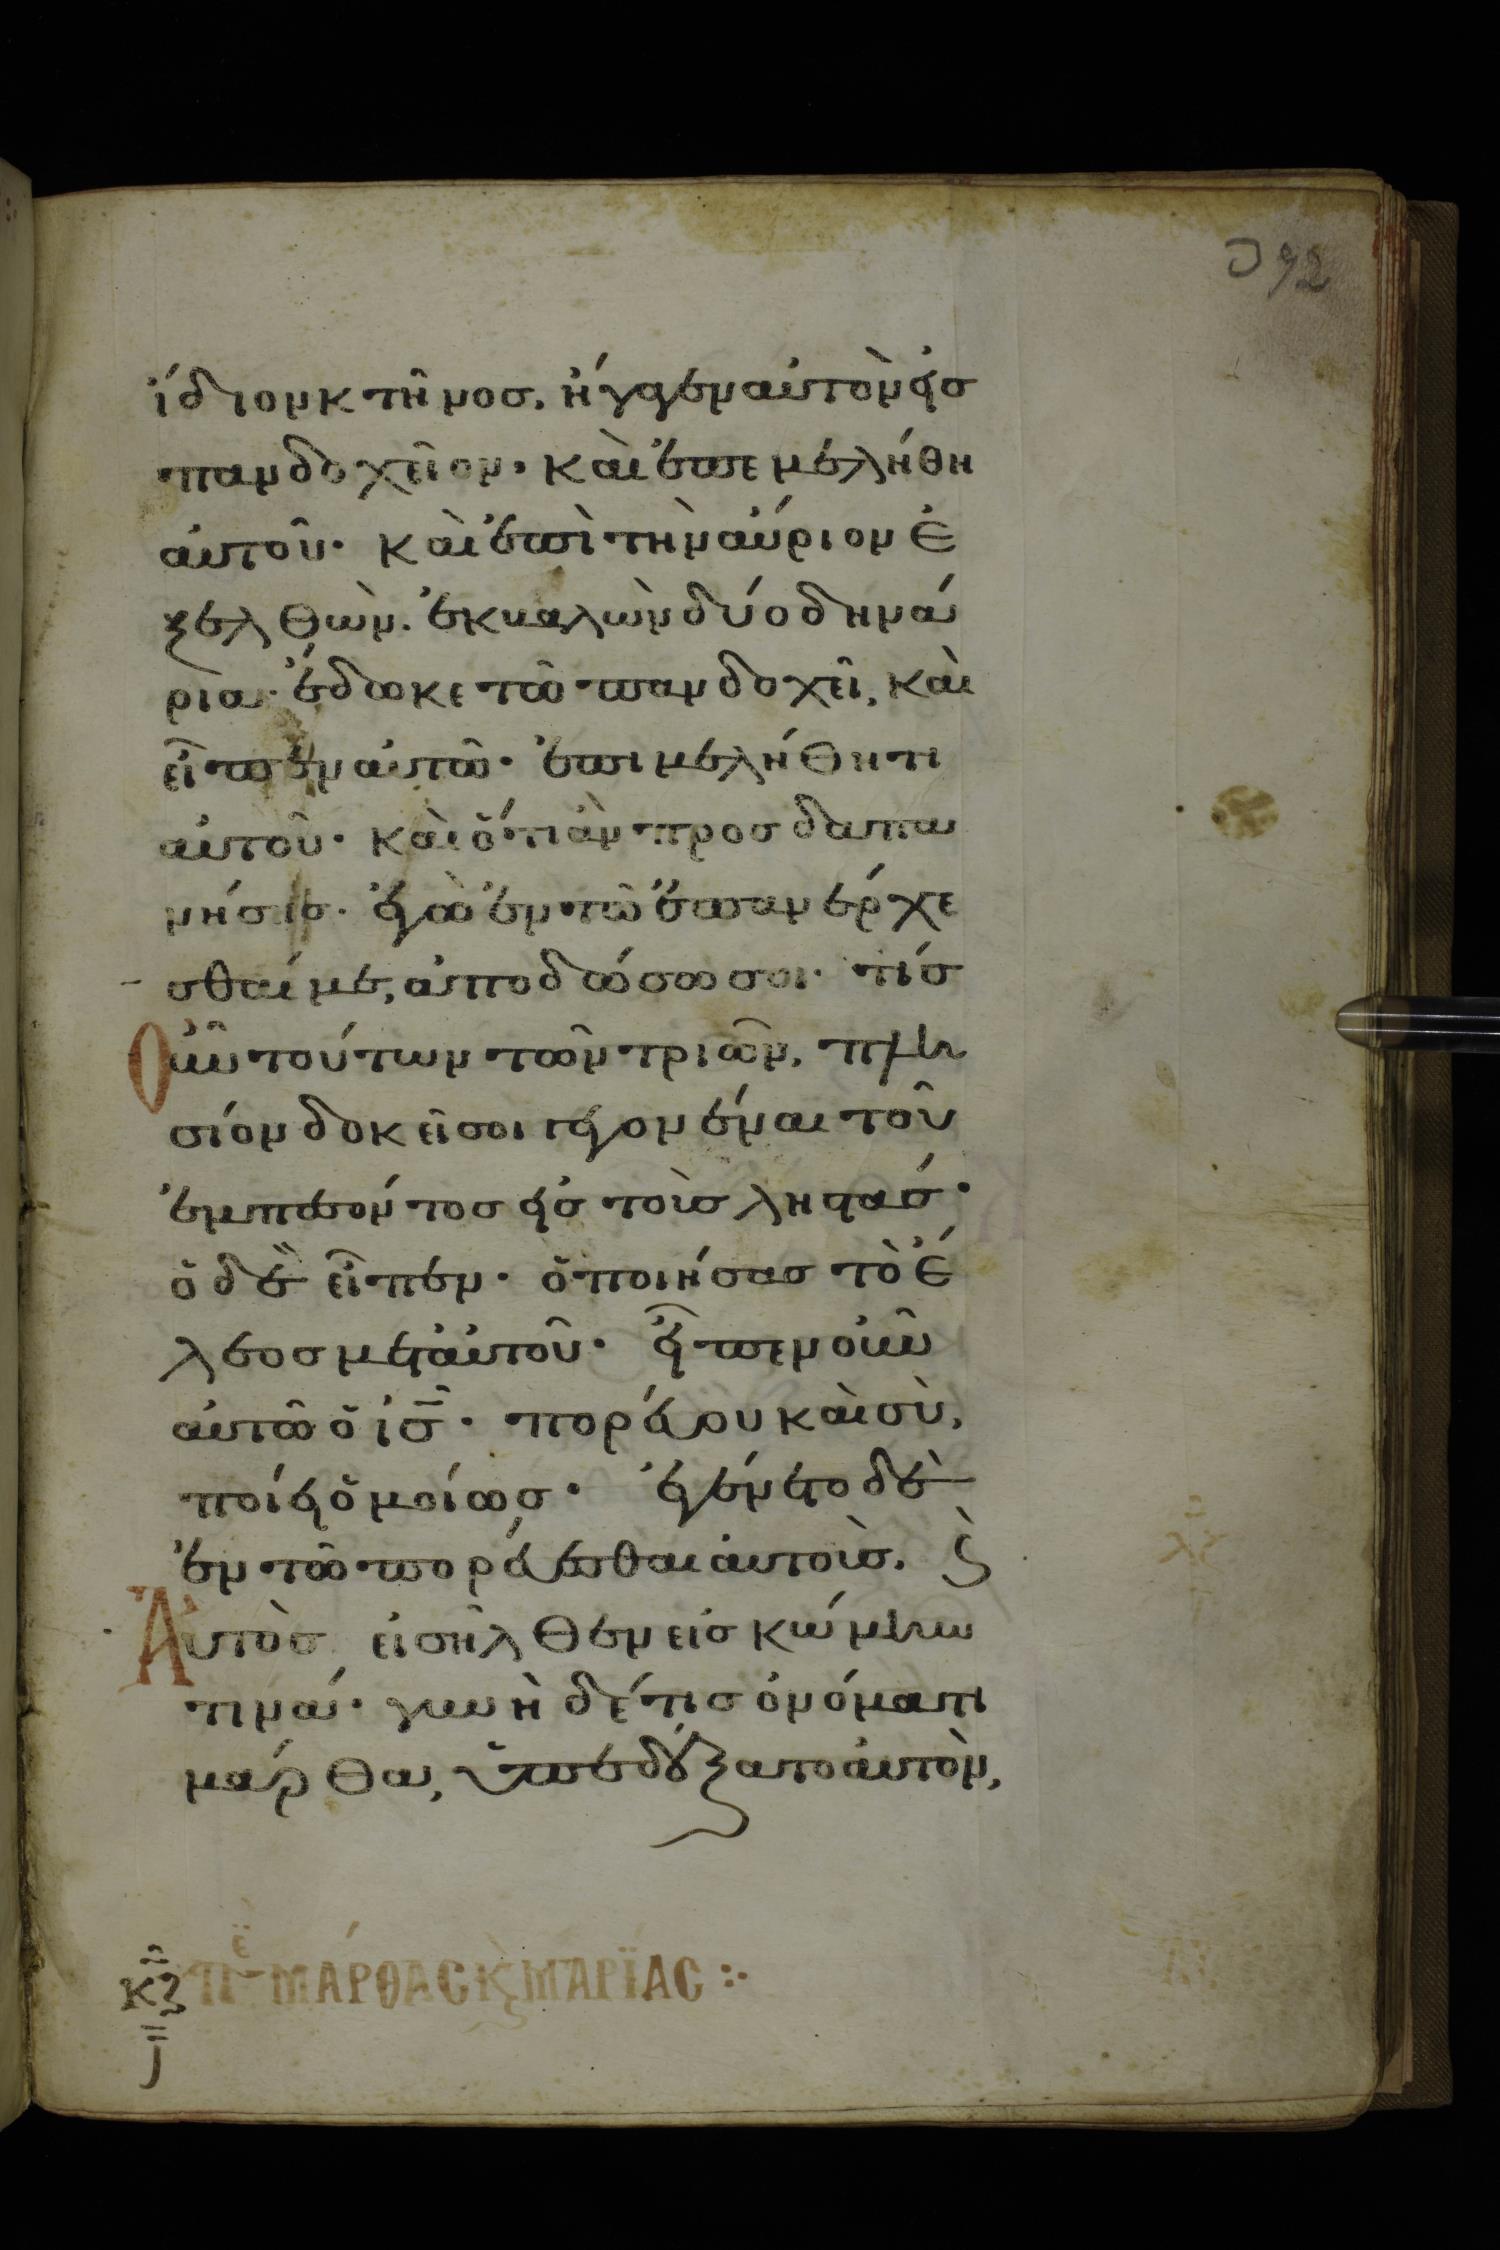 192
ἴδιον κτῆνος. ἤγαγεν αὐτὸν εἰς
πανδοχεῖον· καὶ ἐπεμελήθη
αὐτοῦ· καὶ ἐπὶ τὴν αὔριον ἐ
ξελθὼν. ἐκβαλὼν δύο δηνά
ρια· ἔδωκε τῶ πανδοχεῖ, καὶ
εἶπεν αὐτῶ· ἐπιμελήθητι
αὐτοῦ· καὶ ὅτι ἂν προσδαπα
νήσεις· ἐγὼ ἐν τῶ ἐπανέρχε
σθαί με, ἀποδώσω σοι· τίς
οὖν τούτων τῶν τριῶν, πλη
σίον δοκεῖ σοι γεγονέναι τοῦ
ἐμπεσόντος εἰς τοὺς ληστάς·
ὁ δὲ εἶπεν· ὁ ποιήσας τὸ ἔ
λεος μετ' αὐτοῦ· εἶπεν οὖν
αὐτῶ ὁ ἰς̅· πορεύου καὶ σὺ,
ποίει ὁμοίως· ἐγένετο δὲ
ἐν τῶ πορεύεσθαι αὐτοὺς. ϗ
αὐτὸς εἰσῆλθεν εἰς κώμην
τινά· γυνὴ δέ τις ὀνόματι
μάρθα, ὑπεδέξατο αὐτὸν,
πε ΜΆΡΘΑС ϗ ΜΑΡΪ́ΑС :·